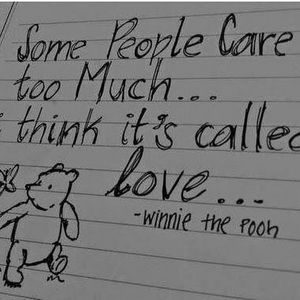 Some People Care
too Much...
i think it's called
love...
-Winnie the Pooh